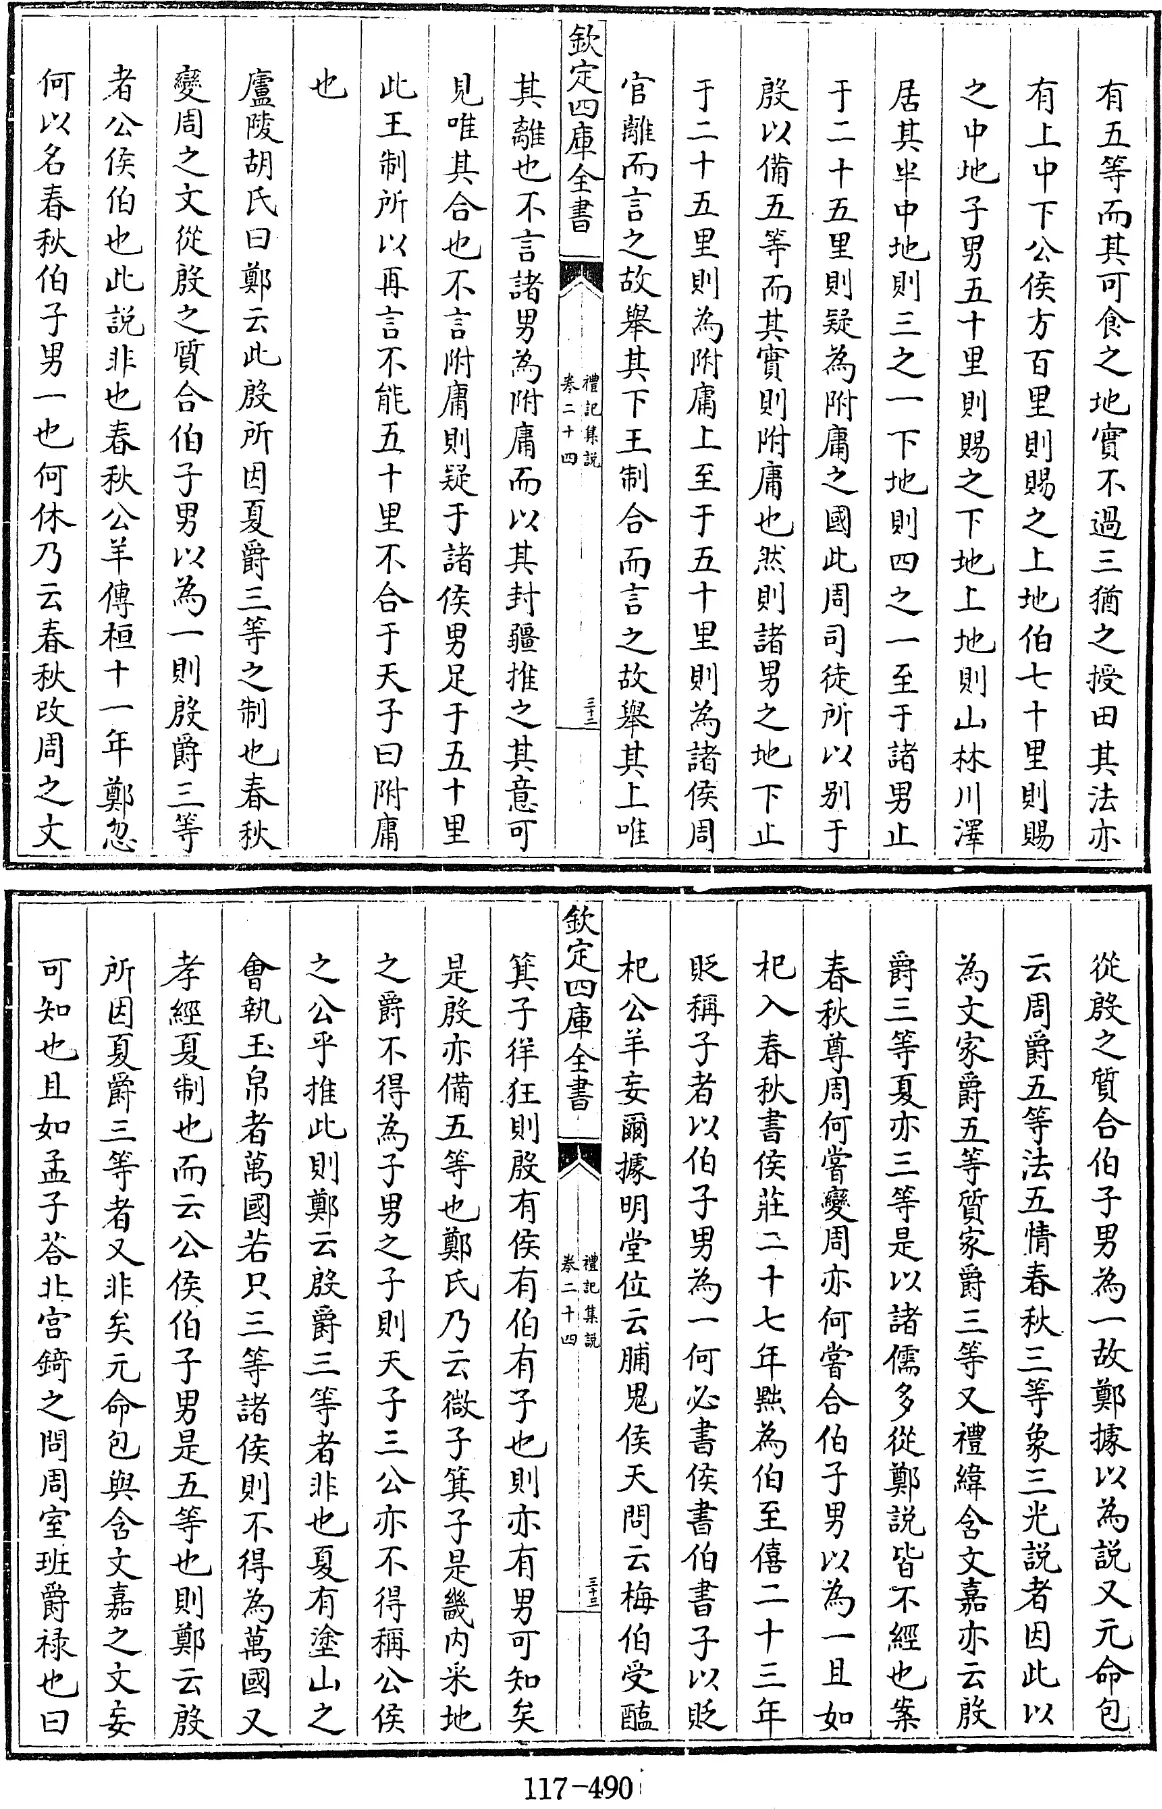 有五等而其可食之地實不過三猶之授田其法亦
有上中下公侯方百里則賜之上地伯七十里則賜
之中地子男五十里則賜之下地上地則山林川澤
居其半中地則三之一下地則四之一至于諸男止
于二十五里則疑為附庸之國此周司徒所以别于
殷以備五等而其實則附庸也然則諸男之地下止
于二十五里則為附庸上至于五十里則為諸侯周
官離而言之故舉其下王制合而言之故舉其上唯
欽定四庫全書
禮記集説
卷二十四
三十三
其離也不言諸男為附庸而以其封疆推之其意可
見唯其合也不言附庸則疑于諸侯男足于五十里
此王制所以再言不能五十里不合于天子曰附庸
也
廬陵胡氏曰鄭云此殷所因夏爵三等之制也春秋
變周之文從殷之質合伯子男以為一則殷爵三等
者公侯伯也此説非也春秋公羊傳桓十一年鄭忽
何以名春秋伯子男一也何休乃云春秋改周之文
從殷之質合伯子男為一故鄭據以為説又元命包
云周爵五等法五情春秋三等象三光説者因此以
為文家爵五等質家爵三等又禮緯含文嘉亦云殷
爵三等夏亦三等是以諸儒多從鄭説皆不經也案
春秋尊周何嘗變周亦何嘗合伯子男以為一且如
杞入春秋書侯莊二十七年黜為伯至僖二十三年
貶稱子者以伯子男為一何必書侯書伯書子以貶
杞公羊妄爾據明堂位云脯鬼侯天問云梅伯受醢
欽定四庫全書
禮記集説
卷二十四
三十三
箕子徉狂則殷有侯有伯有子也則亦有男可知矣
是殷亦備五等也鄭氏乃云微子箕子是畿内采地
之爵不得為子男之子則天子三公亦不得稱公侯
之公乎推此則鄭云殷爵三等者非也夏有塗山之
會執玉帛者萬國若只三等諸侯則不得為萬國又
孝經夏制也而云公侯伯子男是五等也則鄭云殷
所因夏爵三等者又非矣元命包與含文嘉之文妄
可知也且如孟子荅北宫錡之問周室班爵禄也曰
117-490